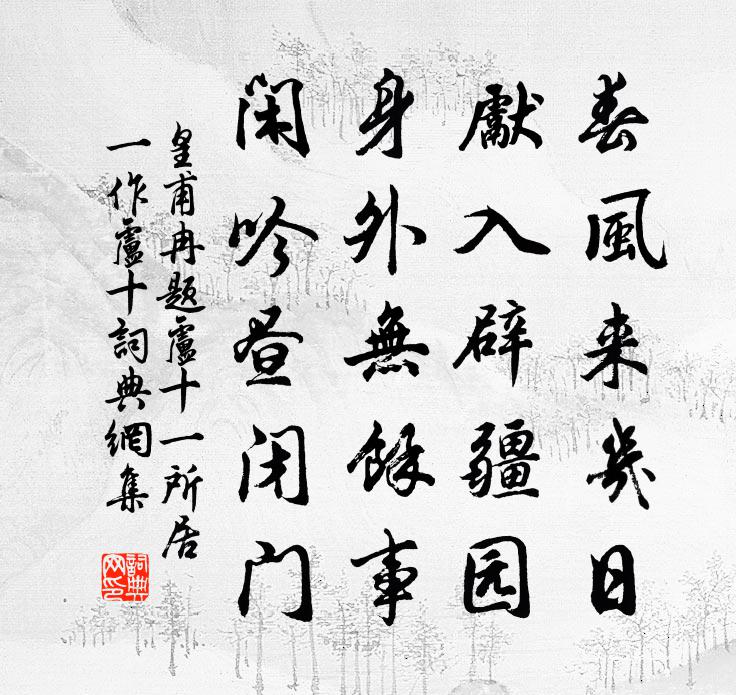 春風来幾日
獻入辟疆园
身外無餘事
闲吟昼闭门
皇甫冉題盧十一所居
一作盧十詞典網集
詞典
网印